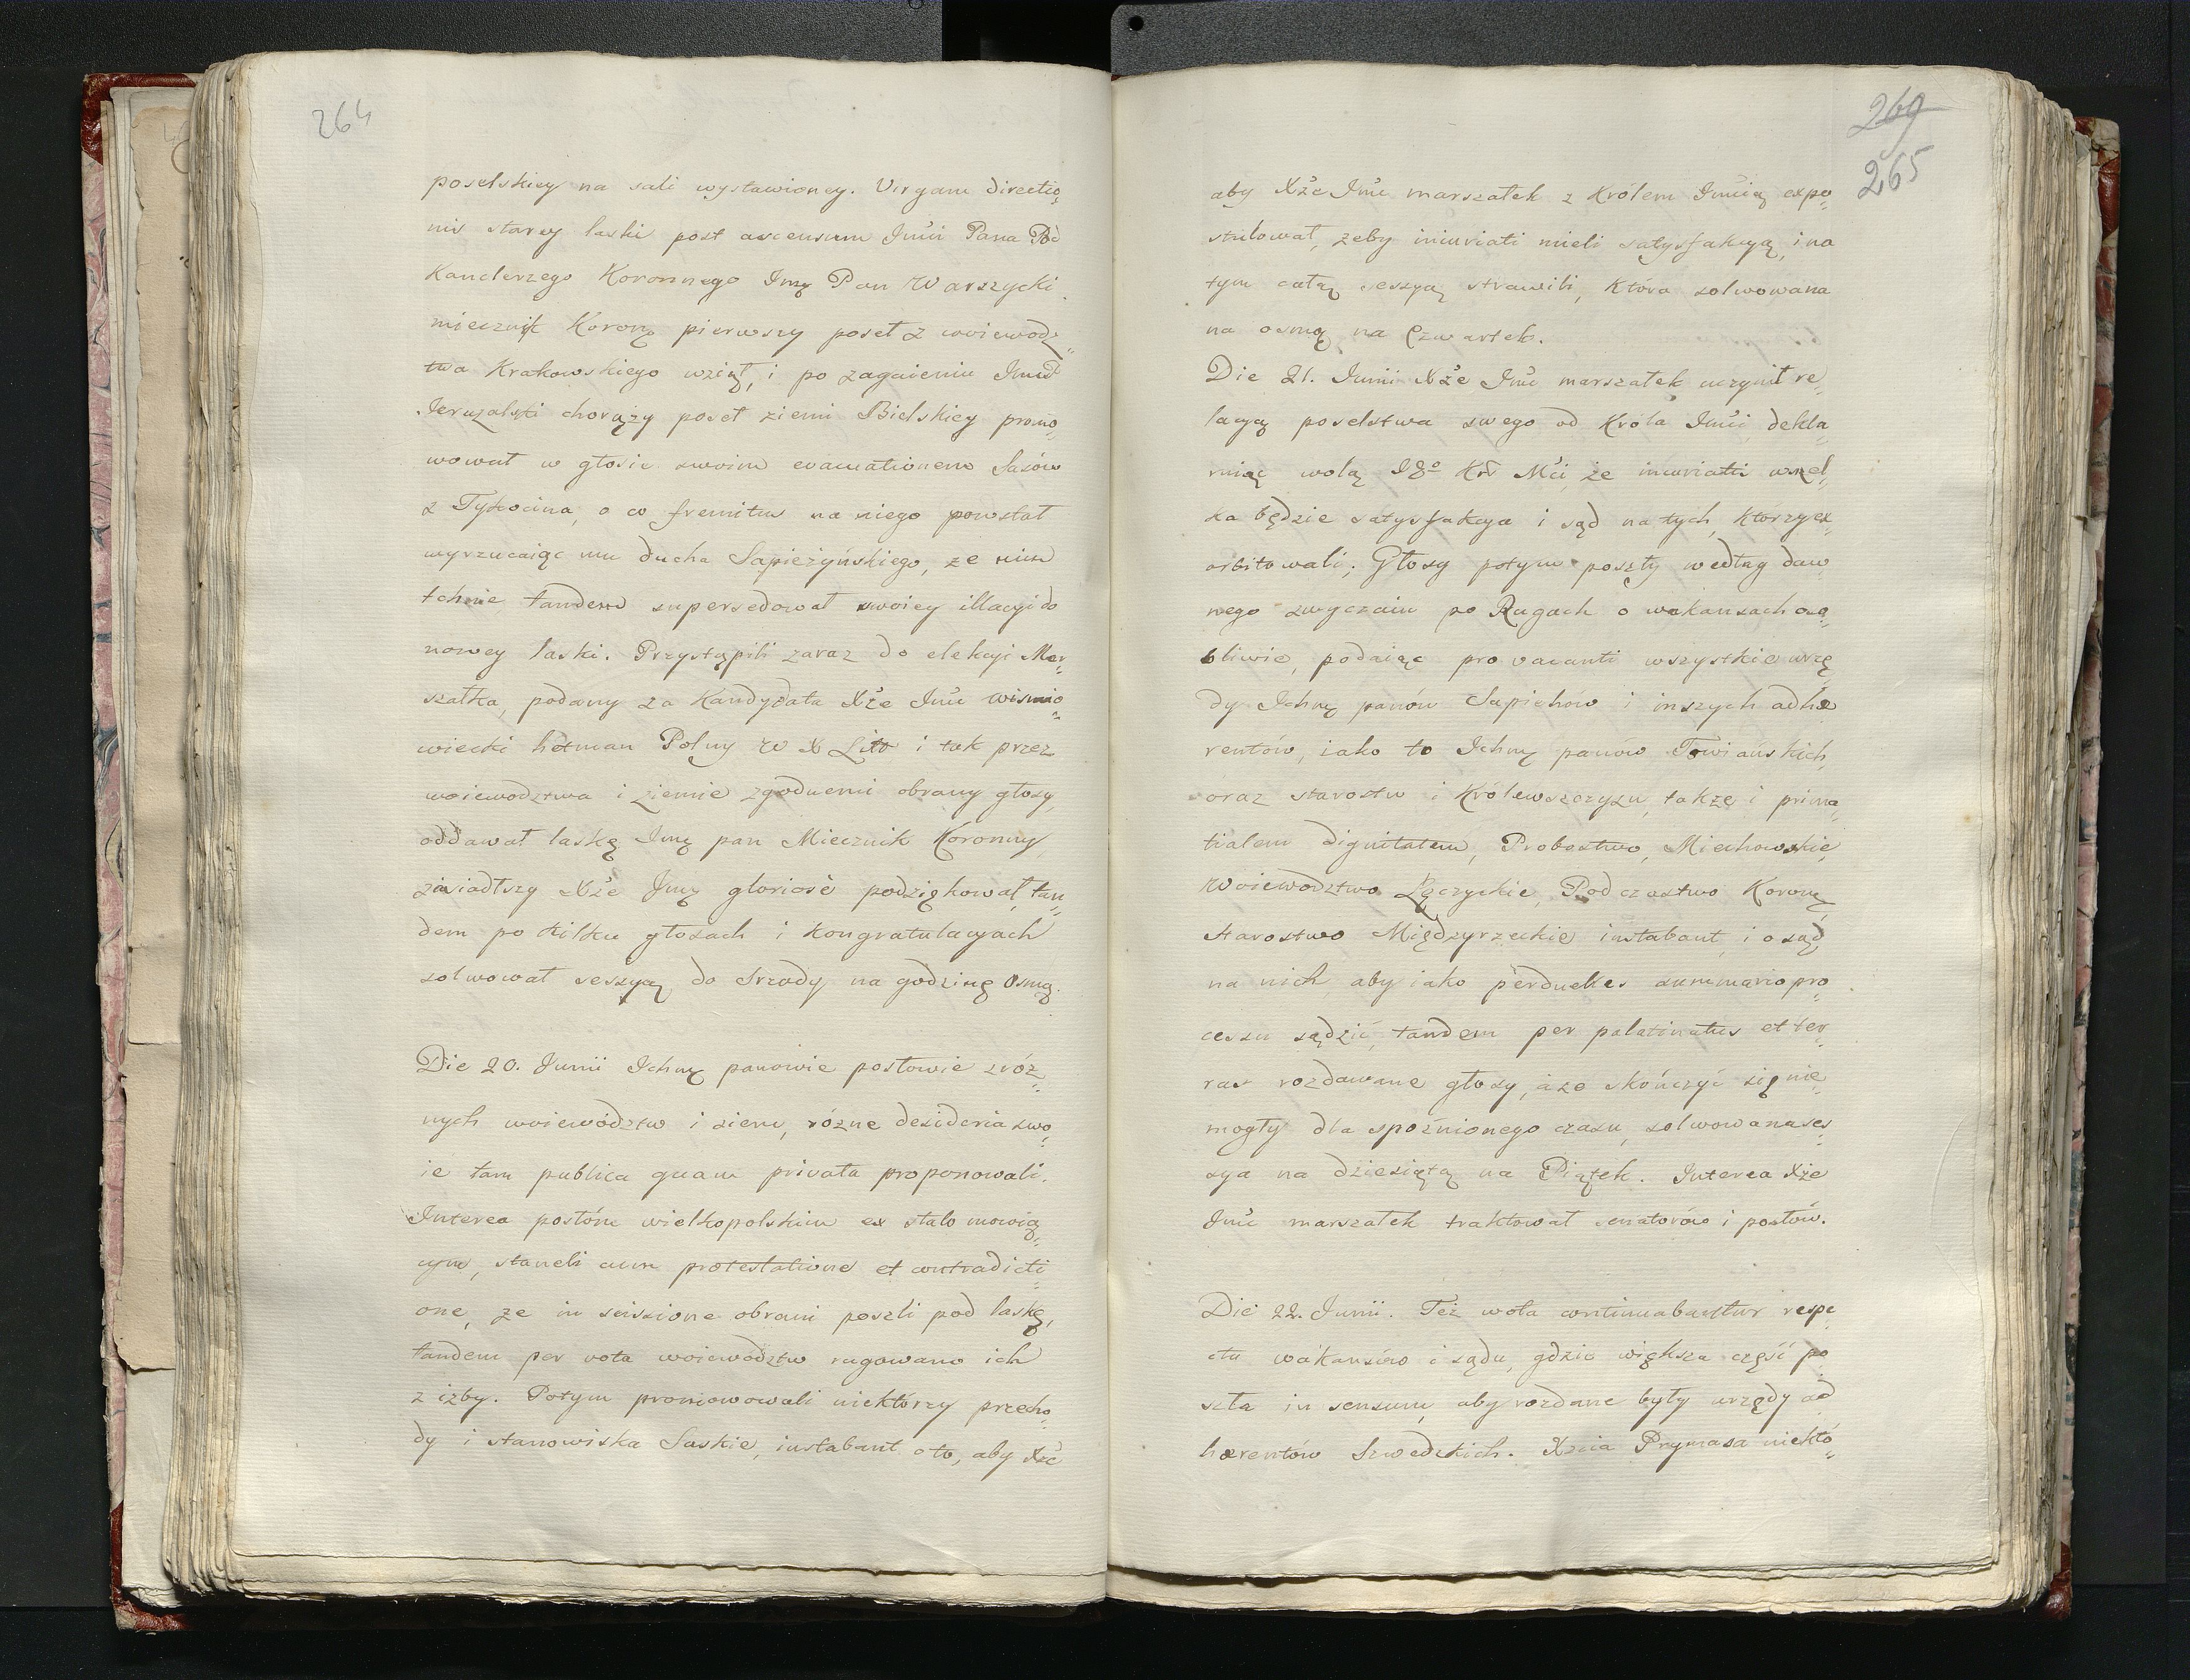 264
poselskiey na sali wystawioney. Virgam directio„
nis starey laski post ascensum Jmci Pana Pod
Kanclerzego Koronnego Jmę Pan Warszycki
miecznik Koroñ pierwszy poseł z woiewodz„
twa Krakowskiego wziął, i po zagaieniu Jmci
Jeruzalski chorąży poseł ziemi Bielskiey promo„
wował w głosie swoim evacuationem Sasów
z Tykocina, o co fremitus na niego powstał
wyrzucaiąc mu ducha Sapieżyńskiego, że nim
tchnie, tandem supersedował swoiey illacyi do
nowey laski. Przystąpili zaraz do elekcyi Mar„
szałka, podany za Kandydata Xże Jmć Wisnio„
wiecki hetman Polny W X Litt i tak przez
woiewodztwa i ziemie zgodnemi obrany głosy,
oddawał laskę Jmę pan Miecznik Koronny,
zasiadłszy Xże Jmę gloriosè podziękował, tan„
dem po kilku głosach i kongratulacyach
solwował sessyą do Srzody na godzinę osmą.
Die 20. Junii Ichmę panowie posłowie z róż„
nych woiewództw i ziem, różne desideria swo„
ie tam publica quam privata proponowali.
Interea posłóm wielkopolskim ex stalo mowią„
cym, staneli cum protestatione et contradicti„
one, że in scissione obrani poszli pod laskę,
tandem per vota woiewództw rugowano ich
z izby. Potym promowowali niektórzy przecho„
dy i stanowiska Saskie, instabant o to, aby Xże
269
265
aby Xże Jmć marszałek z Królem Jmcią expo„
stulował, żeby iniuriati mieli satysfakcyą, i na
tym całą sessyą strawili, która solwowana
na osmą na Czwartek.
Die 21. Junii Xże Jmć marszałek uczynił re„
lacyą poselstwa swego od Króla Jmci, dekla„
ruiąc wolą Jgo Kr Mci, że iniuriatis wszel„
ka będzie satysfakcya i sąd na tych, którzy ex„
orbitowali; Głosy potym poszły według daw„
nego zwyczaiu po Rugach o wakansach oso„
bliwie, podaiąc pro vacanti wszystkie urzę„
dy Ichmę panów Sapiehów i inszych adhæ„
rentów, iako to Ichmę panów Towiańskich,
oraz starostw i Królewszczyzn, także i prima„
tialem dignitatem, Probostwo, Miechowskie,
Woiewództwo Łęczyckie, Podczastwo Koroñ
starostwo Międzyrzeckie instabant, i o sąd
na nich aby iako perduelles summario pro„
cessu sądzić, tandem per palatinatus et ter„
ras rozdawane głosy, a że skończyć się nie
mogły dla spoźnionego czasu, solwowana ses„
sya na dziesiątą na Piątek. Interea Xże
Jmć marszałek traktował senatorów i posłów.
Die 22. Junii. Też wota continuabantur respe„
ctu wakansów i sądu, gdzie większa część po„
szła in sensum, aby rozdane były urzędy ad„
hærentów Szwedzkich. Xcia Prymasa niektó„